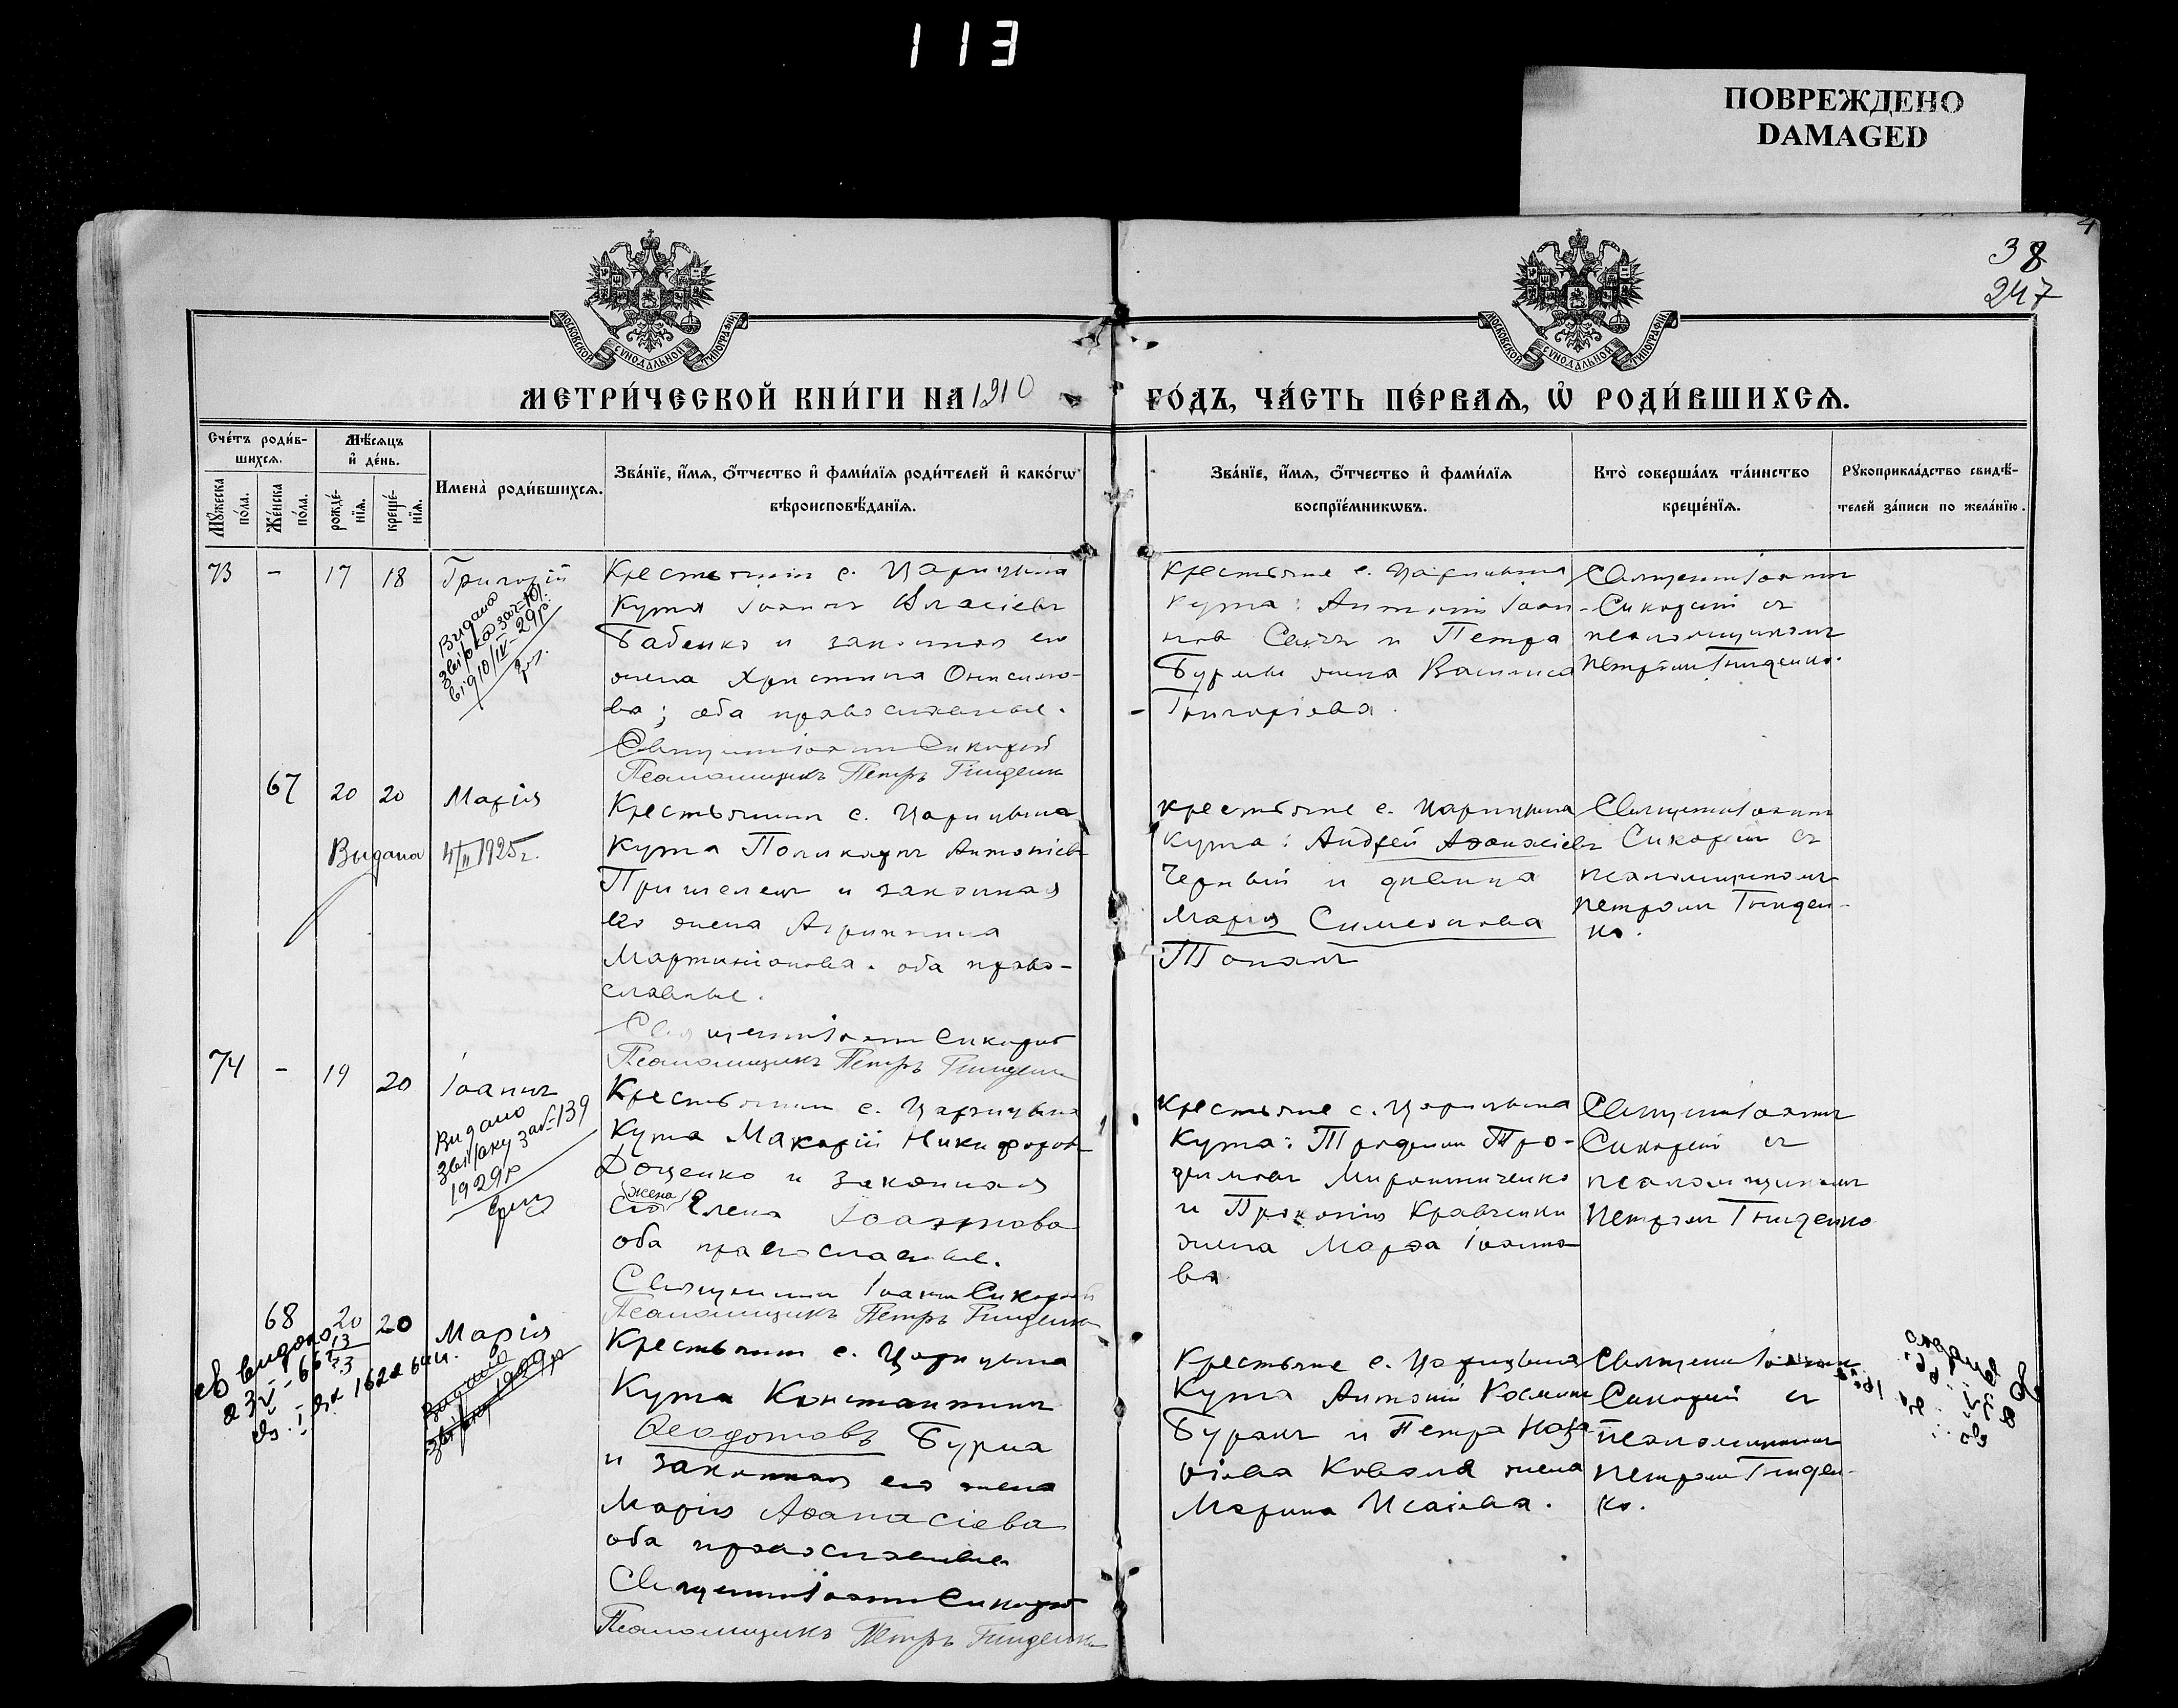 113
ПОВРЕЖДЕНО
DAMAGED
38
247
МОСКОВСКОЙ СѴНОДАЛЬНОЙ ТИПОГРАФІИ
МОСКОВСКОЙ СѴНОДАЛЬНОЙ ТИПОГРАФІИ
МЕТРИ́ЧЕСКОЙ КНИ́ГИ НА 1910 ГО́ДЪ, ЧА́СТЬ ПЕ́РВАѦ, Ѡ҆ РОДИ́ВШИХСѦ.
Сче́тъ роди́в-
шихсѧ.
Мꙋ́жеска по́ла.
Же́нска по́ла.
Мѣ́сѧцъ
и҆ де́нь.
рожде́-
нїѧ.
креще́-
нїѧ.
Имена̀ роди́вшихсѧ.
Зва́нїе, и҆́мѧ, ѻ҆́тчество и҆ фами́лїѧ роди́телей и҆ како́гѡ
вѣроисповѣ́данїѧ.
Зва́нїе, и҆́мѧ, ѻ҆́тчество и҆ фами́лїѧ
воспрїе́мникѡвъ.
Кто̀ соверша́лъ та́инство
креще́нїѧ.
Рꙋкоприкла́дство свидѣ́-
телей за́писи по жела́нїю.
73 - 17 18 Григорій
Видана
29р.
Крестьянин с. Царицына
Кута Іоаннъ Власіевъ
Бабенко и законная его
жена Христина Онисимо-
ва; оба православные.
Священник Іоанн Сикорский
Псаломщикъ Петръ Гниденко
Крестьяне с. Царицына
Кута: Антоній Іоан-
нов и Петра
Бурмы жена Василиса
Григоріева.
Священник Іоаннъ
Сикорский съ
псаломщикомъ
Петромъ Гниденко.
67 20 20 Марія
Выдана 4/II 1925г.
Крестьянин с. Царицына
Кута Поликарпъ Антоніевъ
Пришелец и законная
его жена Агриппина
Мартиніанова. оба право-
славные.
Священник Іоанн Сикорский
Псаломщикъ Петръ Гниденко
крестьяне с. Царицына
Кута: Андрей Аѳанасіевъ
Черный и девица
Мария Симеонова
Священник Іоаннъ
Сикорский съ
псаломщикомъ
Петромъ Гниден-
ко.
74 - 19 20 Іоаннъ
Видано
139
1929р
Крестьянин с. Царицына
Кута Макарій Никифоров
Доценко и законная
его жена Елена Іоаннова
оба православные.
Священник Іоанн Сикорский
Псаломщикъ Петръ Гниденко
Крестьяне с. Царицына
Кута: Трофим Тро-
фимовъ Мирошниченко
и Прокопія Кравченки
жена Марѳа Іоанно-
ва
Священник Іоаннъ
Сикорский съ
псаломщикомъ
Петромъ Гниденко
68 20 20 Марія
Крестьянин с. Царицына
Кута Константинъ
Ѳеодотовъ Бурма
и законная его жена
Марія Аѳанасіева
оба православные
Священник Іоанн Сикорский
Псаломщикъ Петръ Гниденко
Крестьяне с. Царицына
Кута Антоній Космин
и Петра Наза-
ріева Коваля жена
Марина Исаіева.
Священник Іоаннъ
Сикорский съ
псаломщикомъ
Петромъ Гниден-
ко.